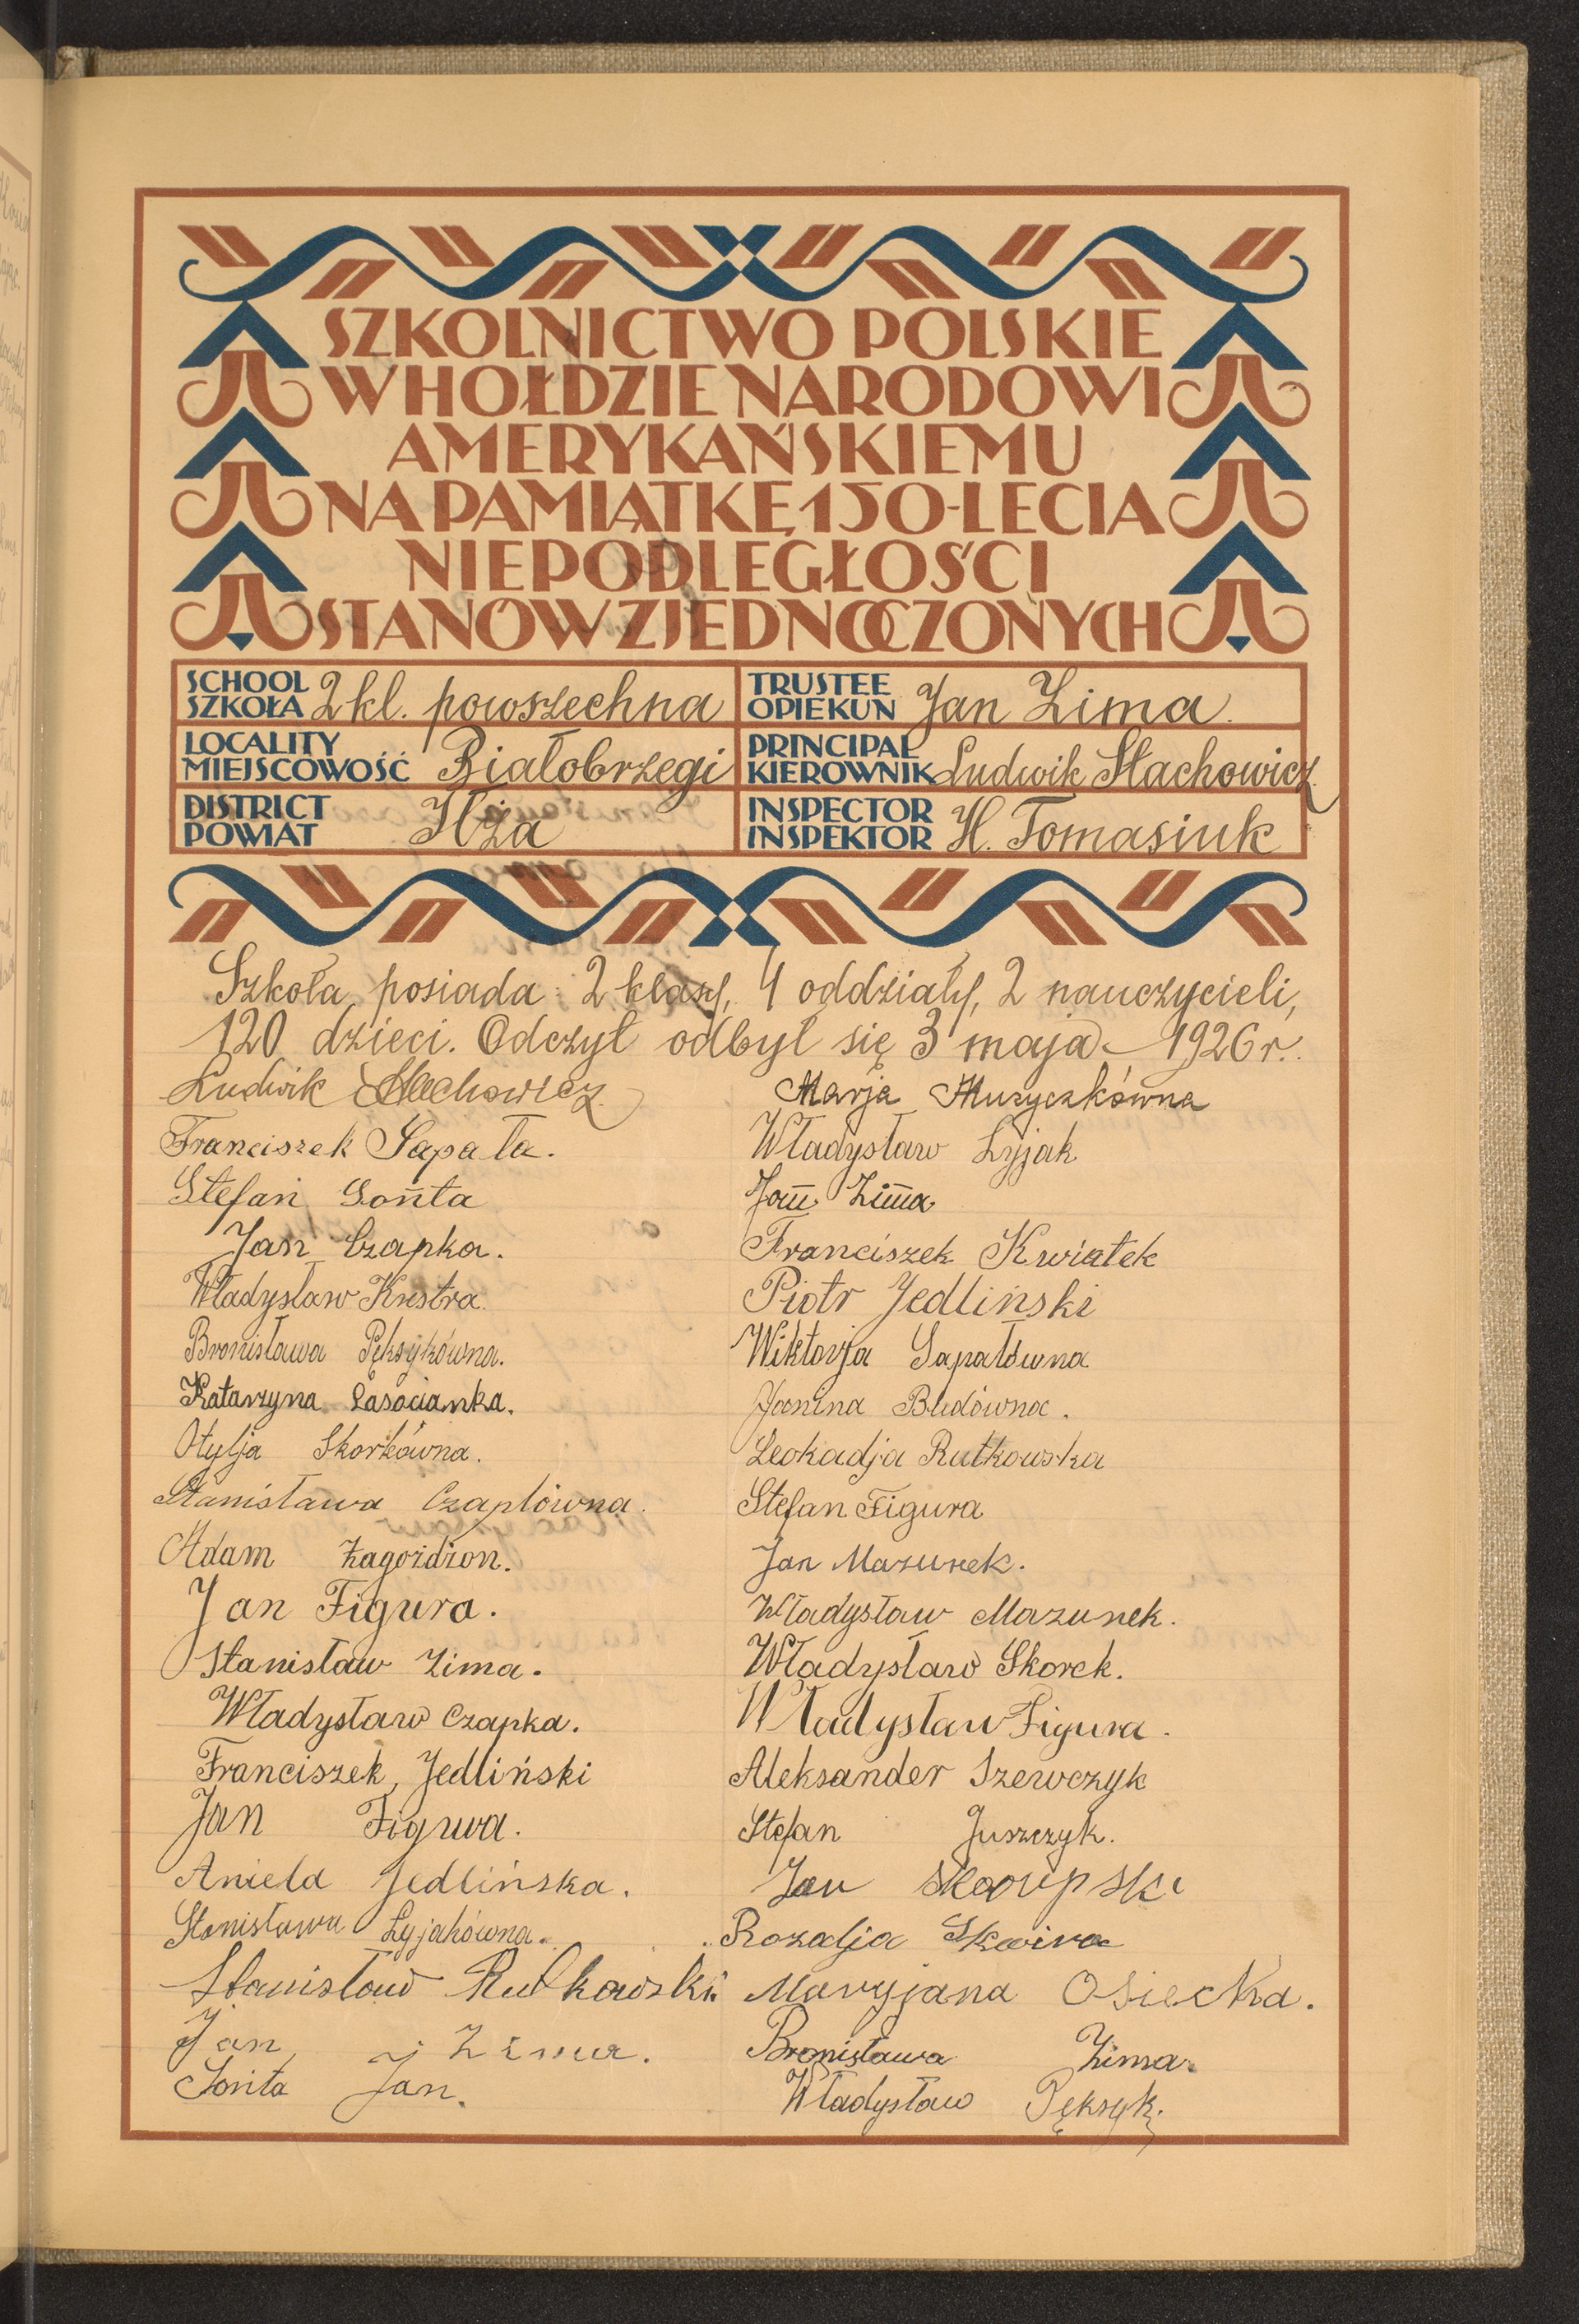 SZKOLNICTWO POLSKIE
W HOŁDZIE NARODOWI
AMERYKAŃSKIEMU
NA PAMIĄTKĘ 150-LECIA
NIEPODLEGŁOŚCI
STANÓW ZJEDNOCZONYCH
SCHOOL
SZKOŁA 2 kl. powszechna
TRUSTEE
OPIEKUN Jan Zima.
LOCALITY
MIEJSCOWOŚĆ Białobrzegi
PRINCIPAL
KIEROWNIK Ludwik Stachowicz
DISTRICT
POWIAT Iłża
INSPECTOR
INSPEKTOR H. Tomasiuk
Szkoła posiada: 2 klasy, 4 oddziały, 2 nauczycieli,
120 dzieci. Odczyt odbył się 3 maja - 1926 r.
Ludwik Stachowicz
Franciszek Sapała.
Stefan Sonta
Jan Czapka.
Władysław Krestra.
Bronisława Pęksykówna.
Katarzyna Lasocianka.
Otylja Skorkówna.
Stanisława Czaplówna.
Adam Zagożdżon.
Jan Figura.
Stanisław Zima.
Władysław Czapka.
Franciszek Jedliński
Jan Figura.
Aniela Jedlińska.
Stanisława Łyjakówna.
Stanisław Rutkowski
Jan Zima.
Sońta Jan.
Marja Muzyczkówna
Władysław Łyjak
Jan Zima
Franciszek Kwiatek
Piotr Jedliński
Wiktorja Sapałówna
Janina Budówna.
Leokadja Rutkowska
Stefan Figura
Jan Mazurek.
Władysław Mazurek.
Władysław Skorek.
Władysław Figura.
Aleksander Szewczyk
Stefan Juszczyk.
Jan Skorupski
Rozalja Skwira
Maryjana Osiecka.
Bronisława Zima.
Władysław Pęksyk.